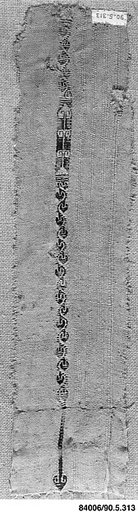 90.5.313
84006/90.5.313